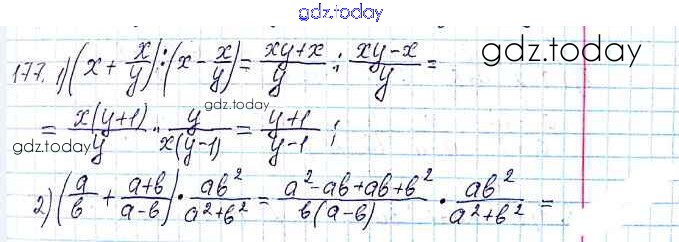 gdz.today
177. 1) (x + x/y) : (x - x/y) = (xy+x)/y : (xy-x)/y =
gdz.today
gdz.today
= x(y+1)/y · y/x(y-1) = (y+1)/(y-1) ;
gdz.today
2) (a/b + (a+b)/(a-b)) · ab²/(a²+b²) = (a²-ab+ab+b²)/b(a-b) · ab²/(a²+b²) =